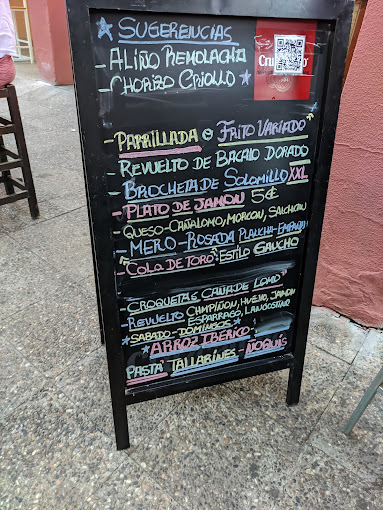 * SUGERENCIAS
- ALIÑO REMOLACHA
- CHORIZO CRIOLLO *
Cruzcampo
- PARRILLADA O FRITO VARIADO
- REVUELTO DE BACALO DORADO
- BROCHETA DE SOLOMILLO XXL
- PLATO DE JAMON 5€
- QUESO-CAÑALOMO, MORCON, SALCHICH
- MERO-ROSADA PLANCHA-EMPANAO
- "COLA DE TORO" ESTILO GAUCHO
- CROQUETAS CAÑA DE LOMO
- REVUELTO CHMPIÑON, HUEVO, JAMON
ESPARRAGO, LANGOSTINO
*SABADO-DOMINGOS*
*ARROZ IBERICO*
PASTA' TALLARINES - ÑOQUIS